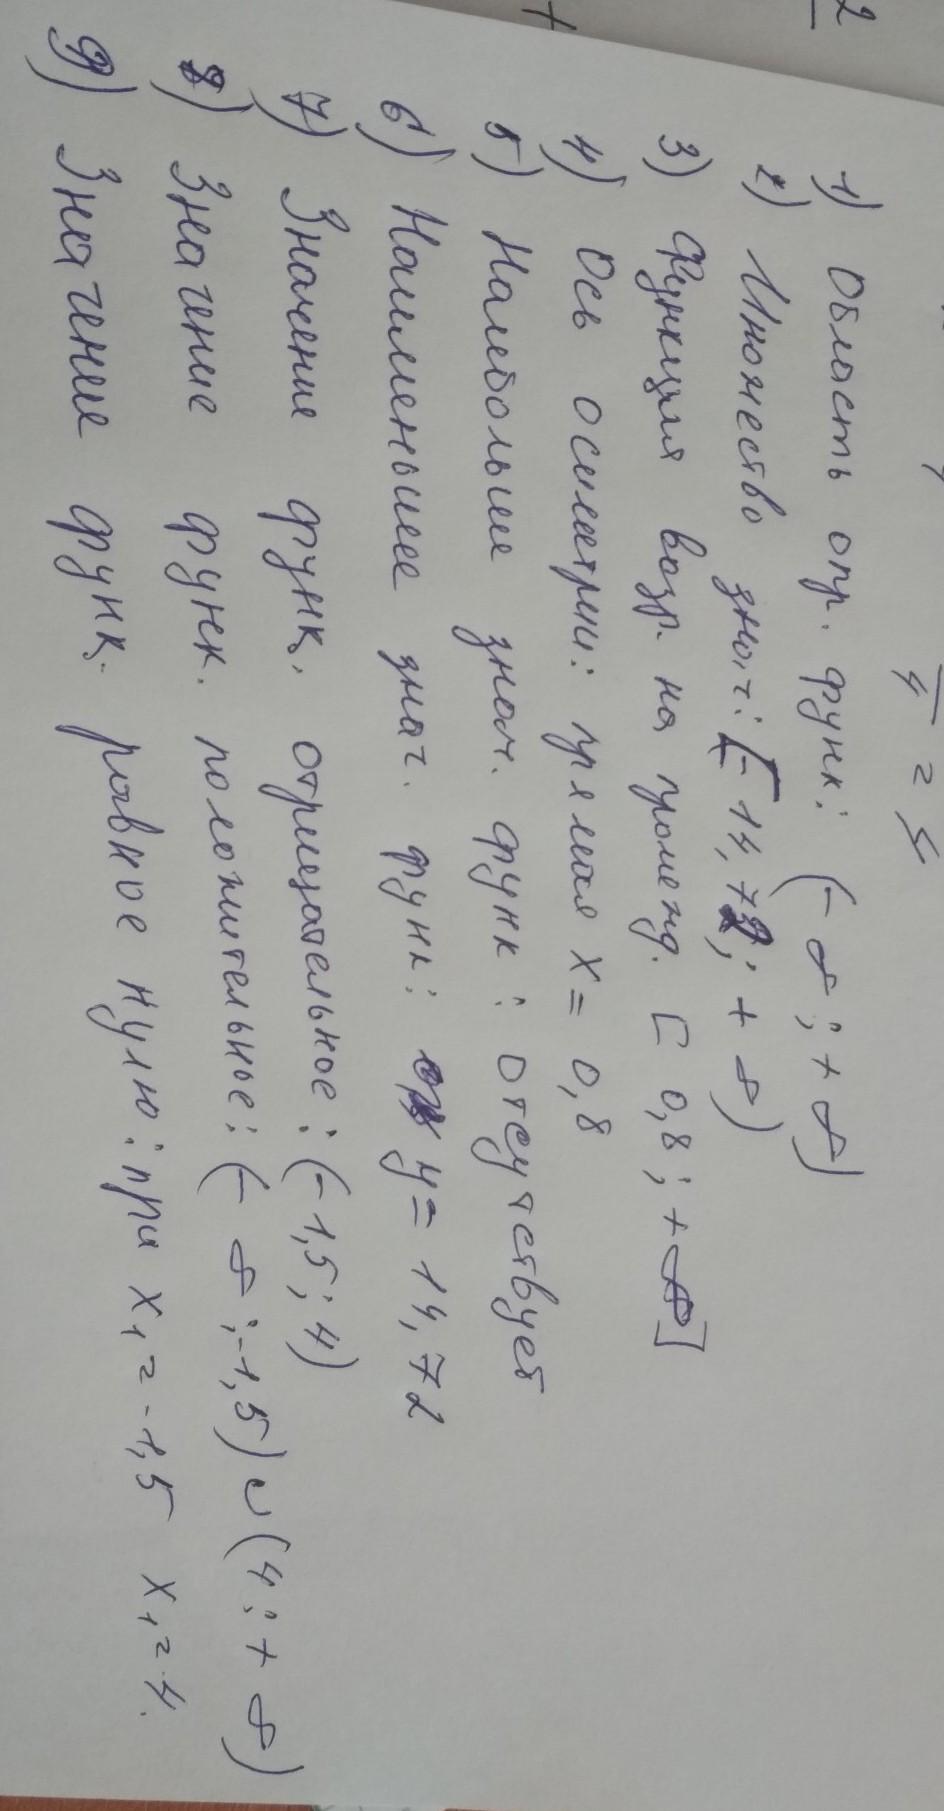 2
+
4/4 = 5
1) Область опр. функ: (-∞; +∞)
2) Множество знач: [-14,72; +∞)
3) Функция возр. на промежд. [0,8; +∞]
4) Ось осиметрии: прямая x = 0,8
5) Наибольшее знач. функ: отсутствует
6) Наименьшее знач. функ: y = 14,72
7) Значение функ. отрицательное: (-1,5; 4)
8) Значение функ. положительное: (-∞; -1,5) ∪ (4; +∞)
9) Значение функ. равное нулю: при x₁ = -1,5 x₁ = 4.